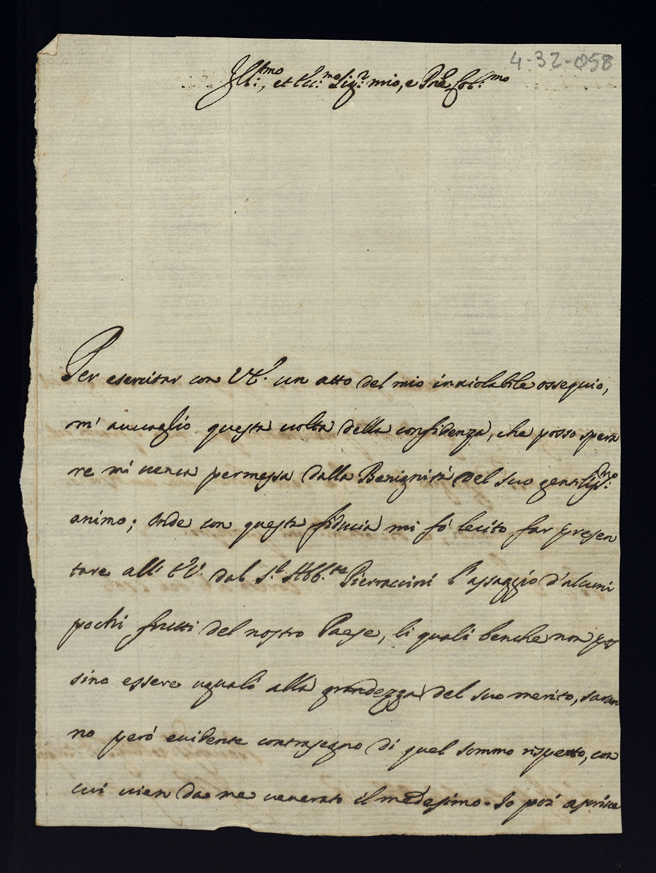 4-32-058
Ill:mo, et Ecc:mo Sig:r mio, e Pne Col:mo
Per esercitar con V.E. un atto del mio inviolabile ossequio,
m' avvaglio questa volta della confidenza, che posso spera
re mi venga permessa dalla Benignità del suo gentiliss:mo
animo; onde con questa fiducia mi fò lecito far presen
tare all' E.V. dal S.r Abb.te Pierraccini l'assaggio d'alcuni
pochi frutti del nostro Paese, li quali benche non pos
sino essere uguali alla grandezza del suo merito, saran
no però evidente contrasegno di quel sommo rispetto, con
cui vien da me venerato il medesimo. Io poi